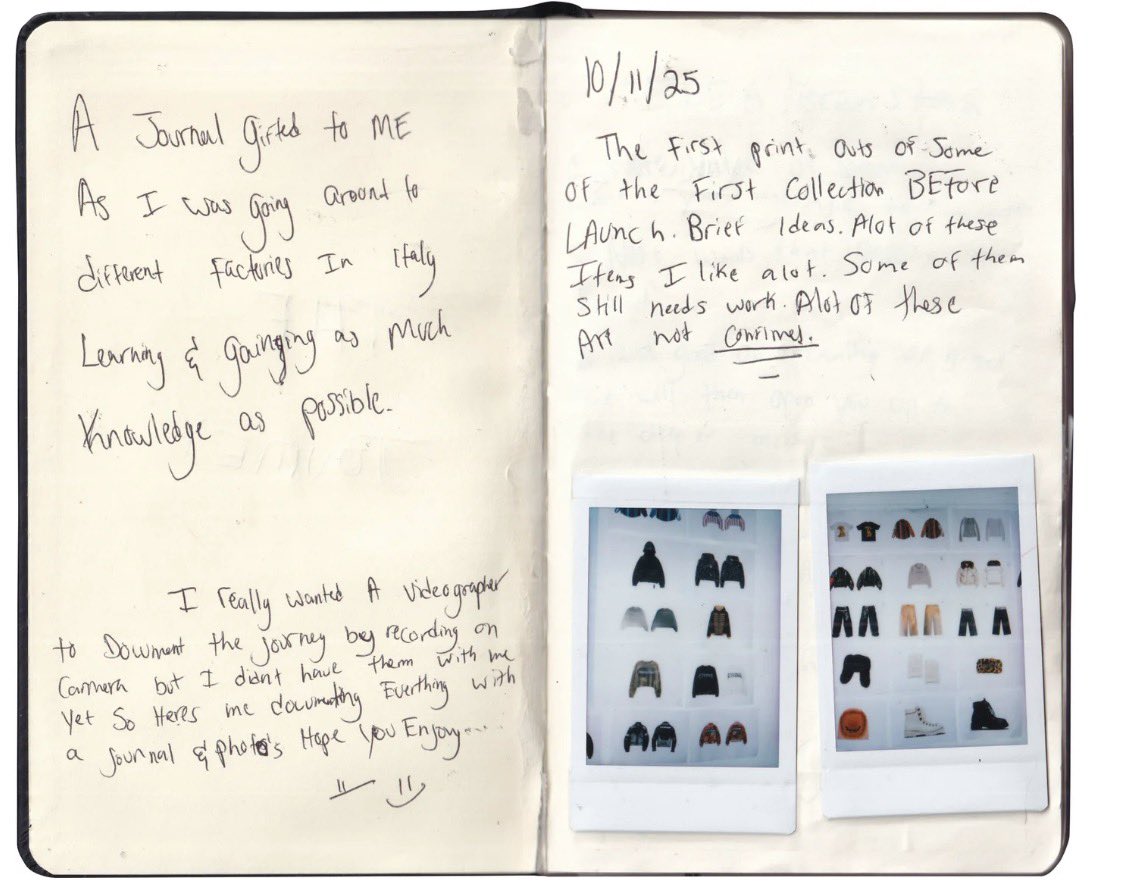 A Journal Gifted to ME
As I was going around to
different Factories In Italy
Learning & gainging as Much
Knowledge as possible.
I really wanted A videographer
to Document the journey bey recording on
Cammera but I didnt have them with me
Yet So Heres me documenting Everthing with
a Journal & photo's Hope You Enjoy....
10/11/25
The First print outs of Some
of the First Collection BEFore
LAunch. Brief Ideas. Alot of these
Items I like alot. Some of them
Still needs work. Alot OF these
Art not Confirmed.